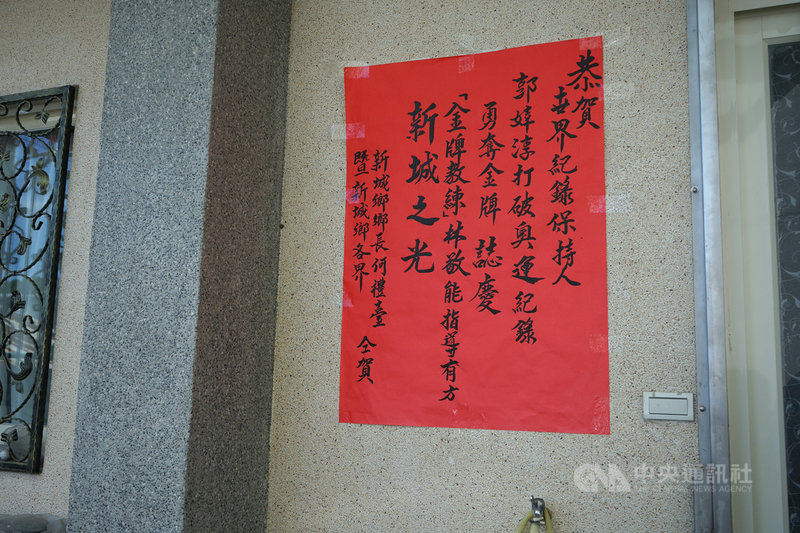 恭賀
世界紀錄保持人
郭婞淳打破奧運紀錄
勇奪金牌 誌慶
「金牌教練」林敬能指導有方
新城之光
新城鄉鄉長何禮臺
暨新城鄉各界 仝賀
CNA 中央通訊社
CENTRAL NEWS AGENCY